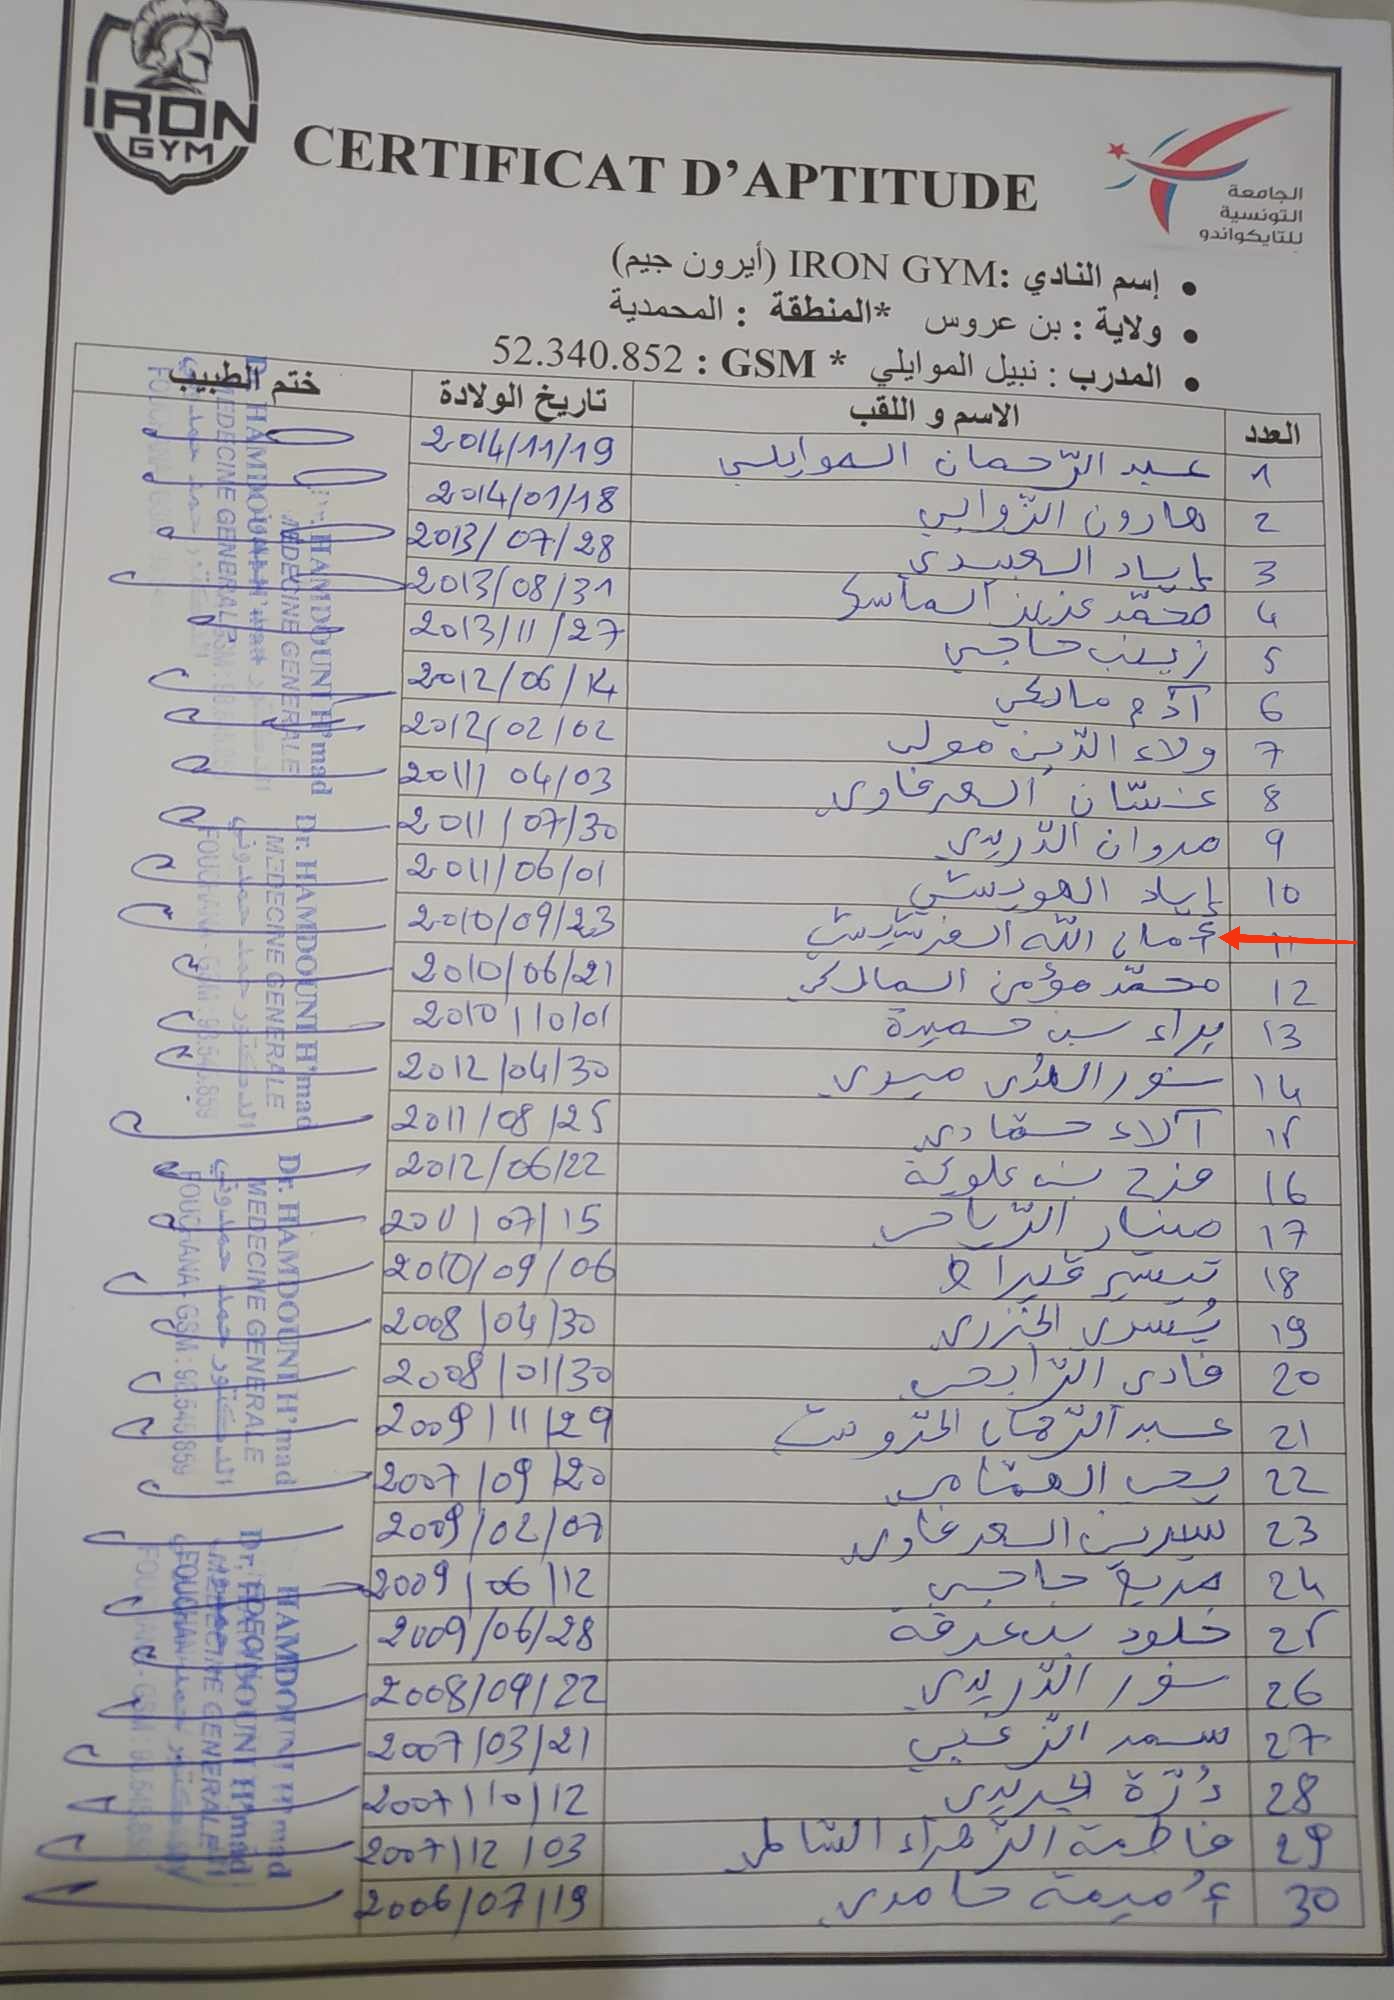 IRON
GYM
CERTIFICAT D'APTITUDE
الجامعة
التونسية
للتايكواندو
• إسم النادي :IRON GYM (أيرون جيم)
• ولاية : بن عروس *المنطقة : المحمدية
• المدرب : نبيل الموايلي * GSM : 52.340.852
العدد الاسم و اللقب تاريخ الولادة ختم الطبيب
1 عبد الرّحمان الموايلي 2014/11/19
2 هارون الزّوابي 2014/01/18
3 إياد العبيدي 2013/07/28
4 محمّد عزيز الماسكي 2013/08/31
5 زينب حاجي 2013/11/27
6 آدم مالكي 2012/06/14
7 ولاء الدّين مولى 2012/02/02
8 غسّان السعرغاوي 2011/04/03
9 مروان الدّريدي 2011/07/30
10 إياد الهويشي 2011/06/01
11 أمان الله الفرشيشي 2010/09/23
12 محمّد مؤمن المالكي 2010/06/21
13 براء بن حميدة 2010/10/01
14 نور الهدى ميري 2012/04/30
15 آلاء حمّادي 2011/08/25
16 فرح بن علويّة 2012/06/22
17 منار الرّياحي 2011/07/15
18 تيسير قيراط 2010/09/06
19 يُسرى الخزري 2008/04/30
20 فادي الرّابحي 2008/01/30
21 عبد الرّحمان 2009/11/29
22 يحي العثماني 2007/09/20
23 سيرين السعرغاوي 2009/02/07
24 مريم حاجي 2009/06/12
25 خلود بن عرفة 2009/06/28
26 نور الدّريدي 2008/09/22
27 سمر الزّغبي 2007/03/21
28 دُرّة الجريدي 2007/10/12
29 فاطمة الزّهراء الشّاملي 2007/12/03
30 أُميمة حامدي 2006/07/19
Dr. HAMDOUNI H'mad
MEDECINE GENERALE
الدكتور حمد حمدوني
FOUCHANA - GSM : 98.545.859